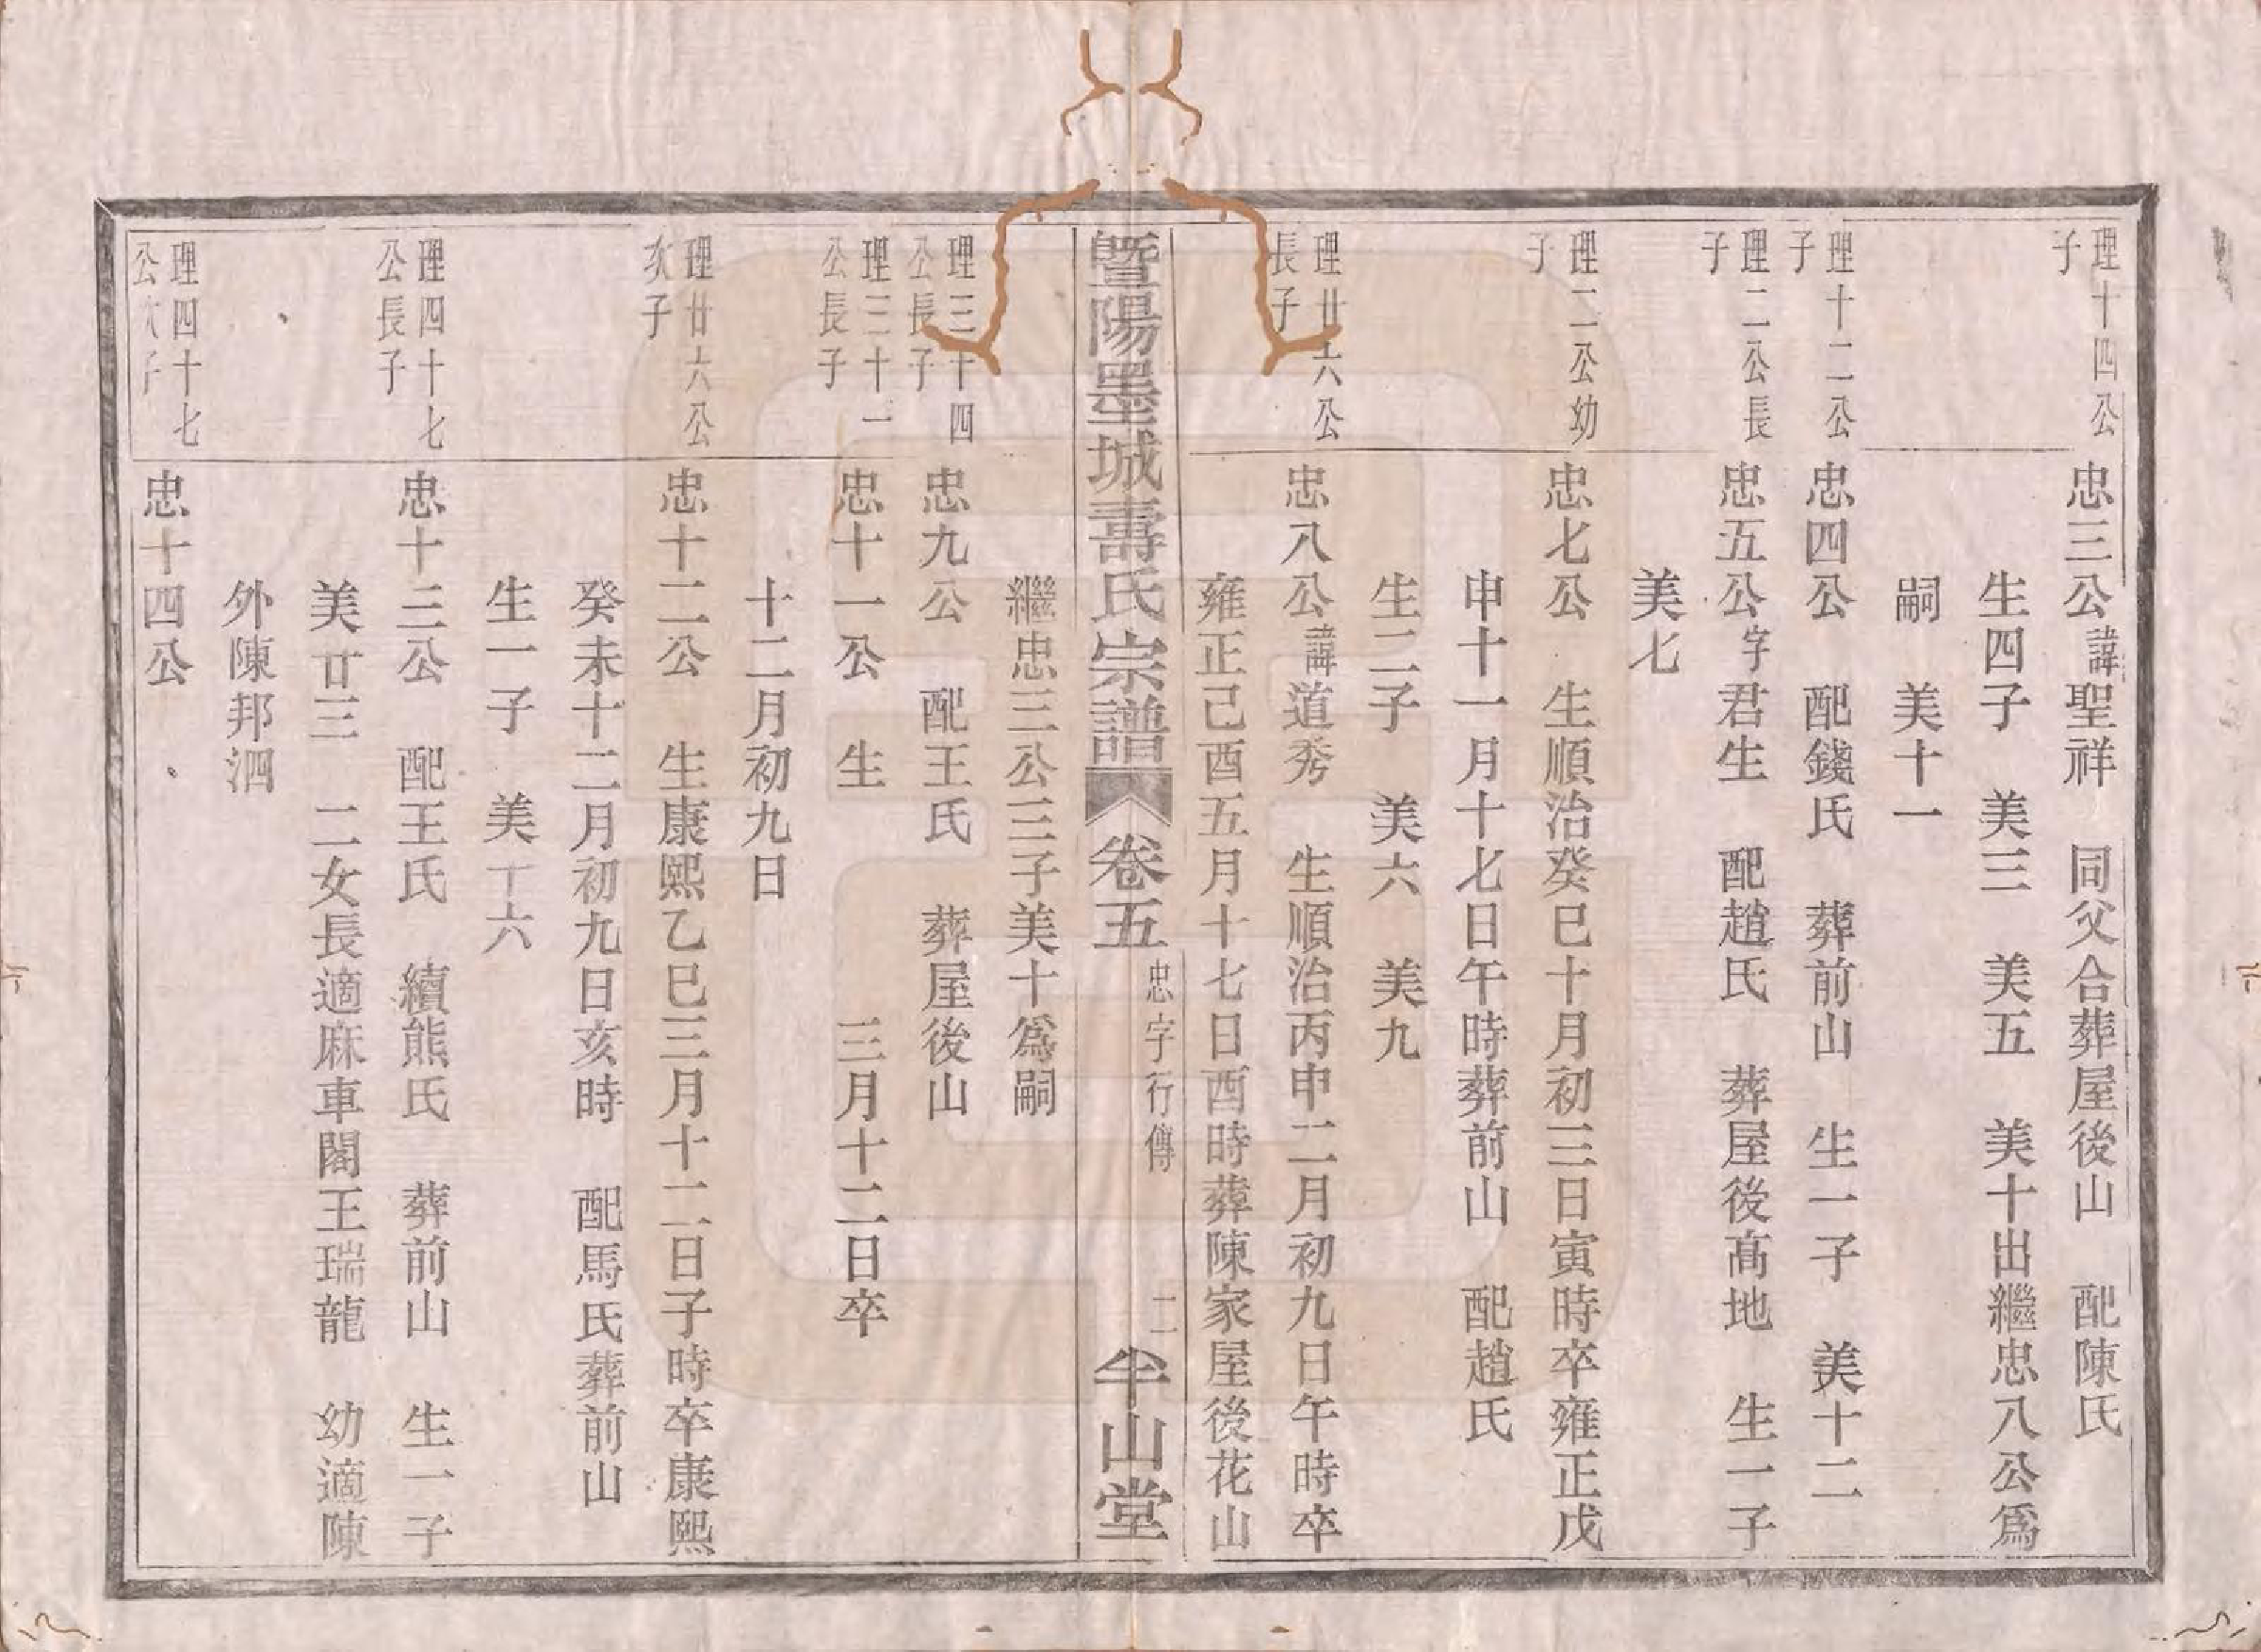 理十四公子
忠三公諱聖祥　同父合葬屋後山　配陳氏
生四子　美三　美五　美十出繼忠八公爲
嗣　美十一
理十二公子
忠四公　配錢氏　葬前山　生一子　美十二
理二公長子
忠五公字君生　配趙氏　葬屋後高地　生一子
美七
理二公幼子
忠七公　生順治癸巳十月初三日寅時卒雍正戊
申十一月十七日午時葬前山　配趙氏
生二子　美六　美九
理廿六公長子
忠八公諱道秀　生順治丙申二月初九日午時卒
雍正己酉五月十七日酉時葬陳家屋後花山
暨陽墨城壽氏宗譜　卷五　忠字行傳　二　半山堂
繼忠三公三子美十爲嗣
理三十四公長子
忠九公　配王氏　葬屋後山
理三十一公長子
忠十一公　生　三月十二日卒
十二月初九日
理廿六公次子
忠十二公　生康熙乙巳三月十二日子時卒康熙
癸未十二月初九日亥時　配馬氏葬前山
生一子　美十六
理四十七公長子
忠十三公　配王氏　續熊氏　葬前山　生一子
美廿三　二女長適麻車閣王瑞龍　幼適陳
外陳邦泗
理四十七公次子
忠十四公